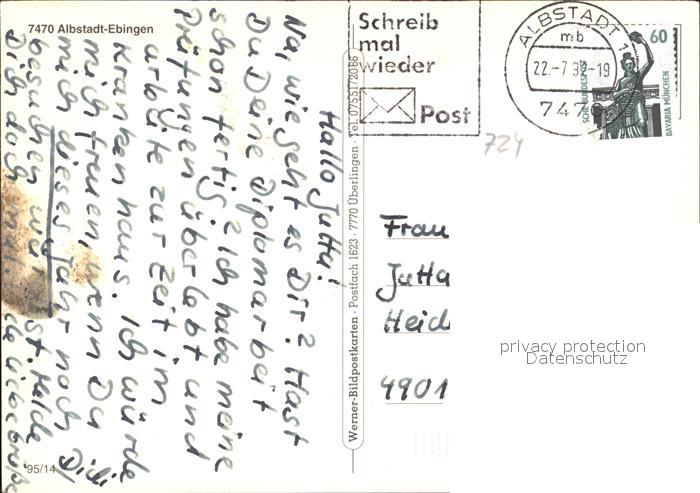 7470 Albstadt-Ebingen
Hallo Jutta!
Na, wie geht es Dir? Hast
Du Deine Diplomarbeit
schon fertig? Ich habe meine
Prüfungen überlebt und
arbeite zur Zeit im
Krankenhaus. Ich würde
mich freuen, wenn Du
mich dieses Jahr noch
besuchen
Dich doch mal.
'95/14
Werner-Bildpostkarten · Postfach 1623 · 7770 Überlingen · Tel. 07551/2066
Schreib
mal
wieder
Post
ALBSTADT 1
mb
22.-7.
-19
747
60
DEUTSCHE BUNDESPOST
BAVARIA MÜNCHEN
724
Frau
Jutta
Heid
4901
privacy protection
Datenschutz